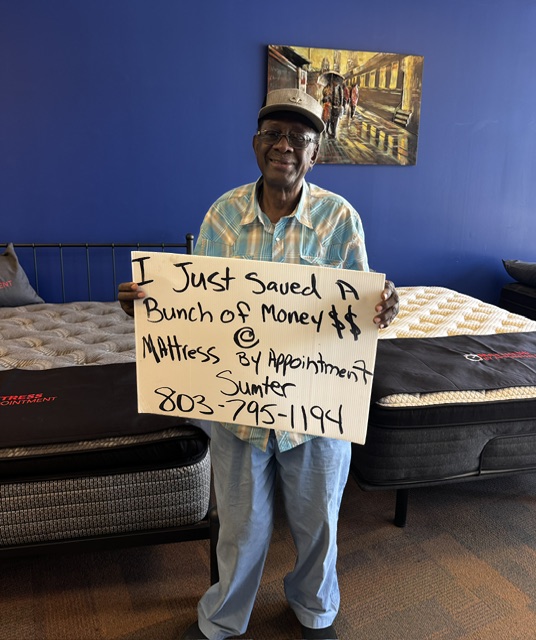 I Just Saved A
Bunch of Money $$
@
MAttress By Appointment
Sumter
803-795-1194
TRESS
OINTMENT